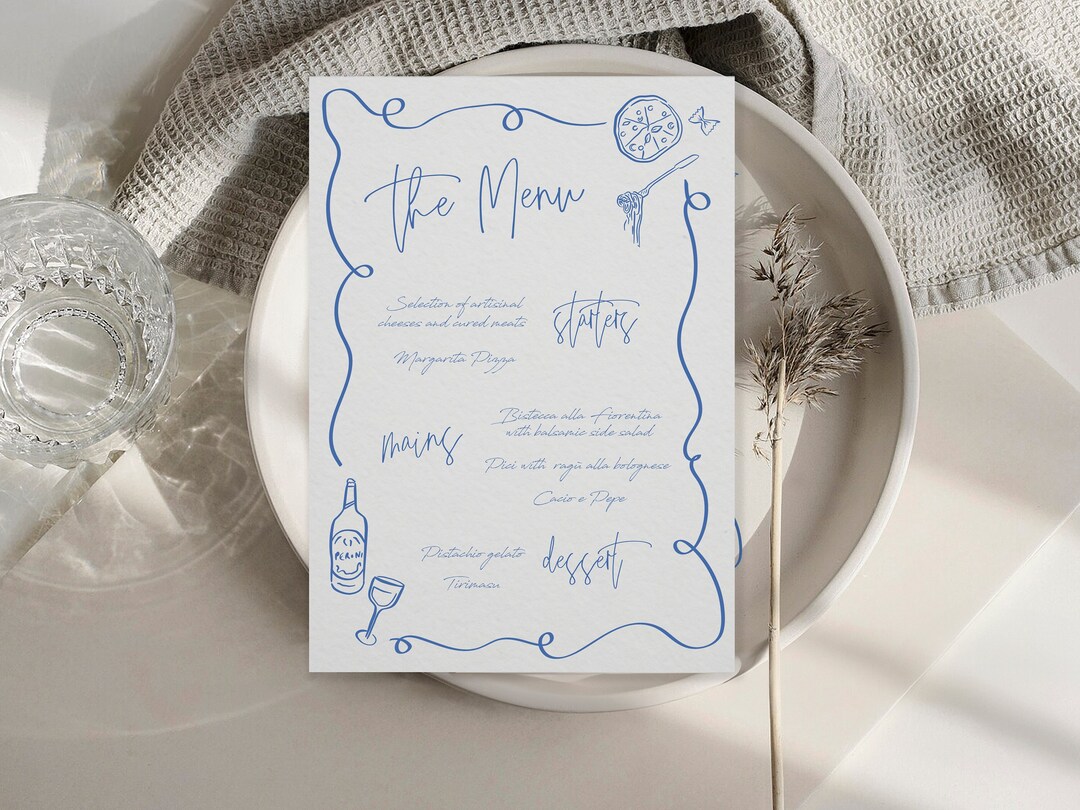 the Menu
starters
Selection of artisinal
cheeses and cured meats
Margarita Pizza
mains
Bistecca alla fiorentina
with balsamic side salad
Pici with ragù alla bolognese
Cacio e Pepe
dessert
Pistachio gelato
Tirimasu
PERONI